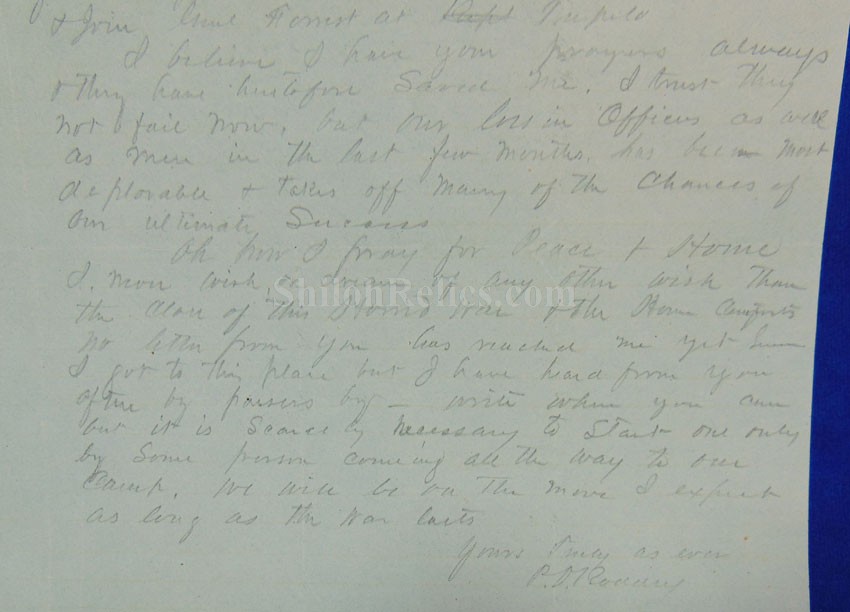 & Join Genl Forrest at Tupelo
I believe I have your prayers always
& they have heretofore Saved me. I trust they
not fail now, but our loss in Officers as well
as men in the last few months. has been most
deplorable & takes off many of the Chances of
our ultimate Success
Oh how I pray for Peace & Home
I. never wish or dream of any other wish than
the close of this Horrid War & the Home Comforts
No letter from you has reached me yet Since
I got to this place but I have heard from you
often by passers by — write when you can
but it is Scarcely necessary to Start one only
by Some person coming all the way to our
Camp. we will be on the move I expect
as long as the War lasts
Yours Truly as ever
P.D. Roddey
ShilohRelics.com